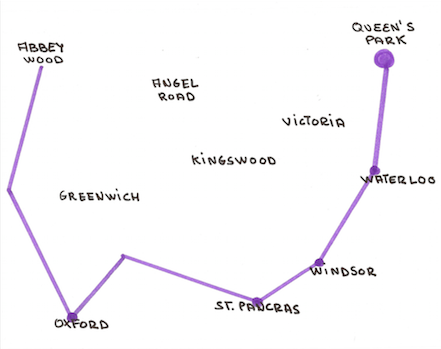 QUEEN'S
PARK
ABBEY
WOOD
ANGEL
ROAD
VICTORIA
KINGSWOOD
WATERLOO
GREENWICH
WINDSOR
ST. PANCRAS
OXFORD